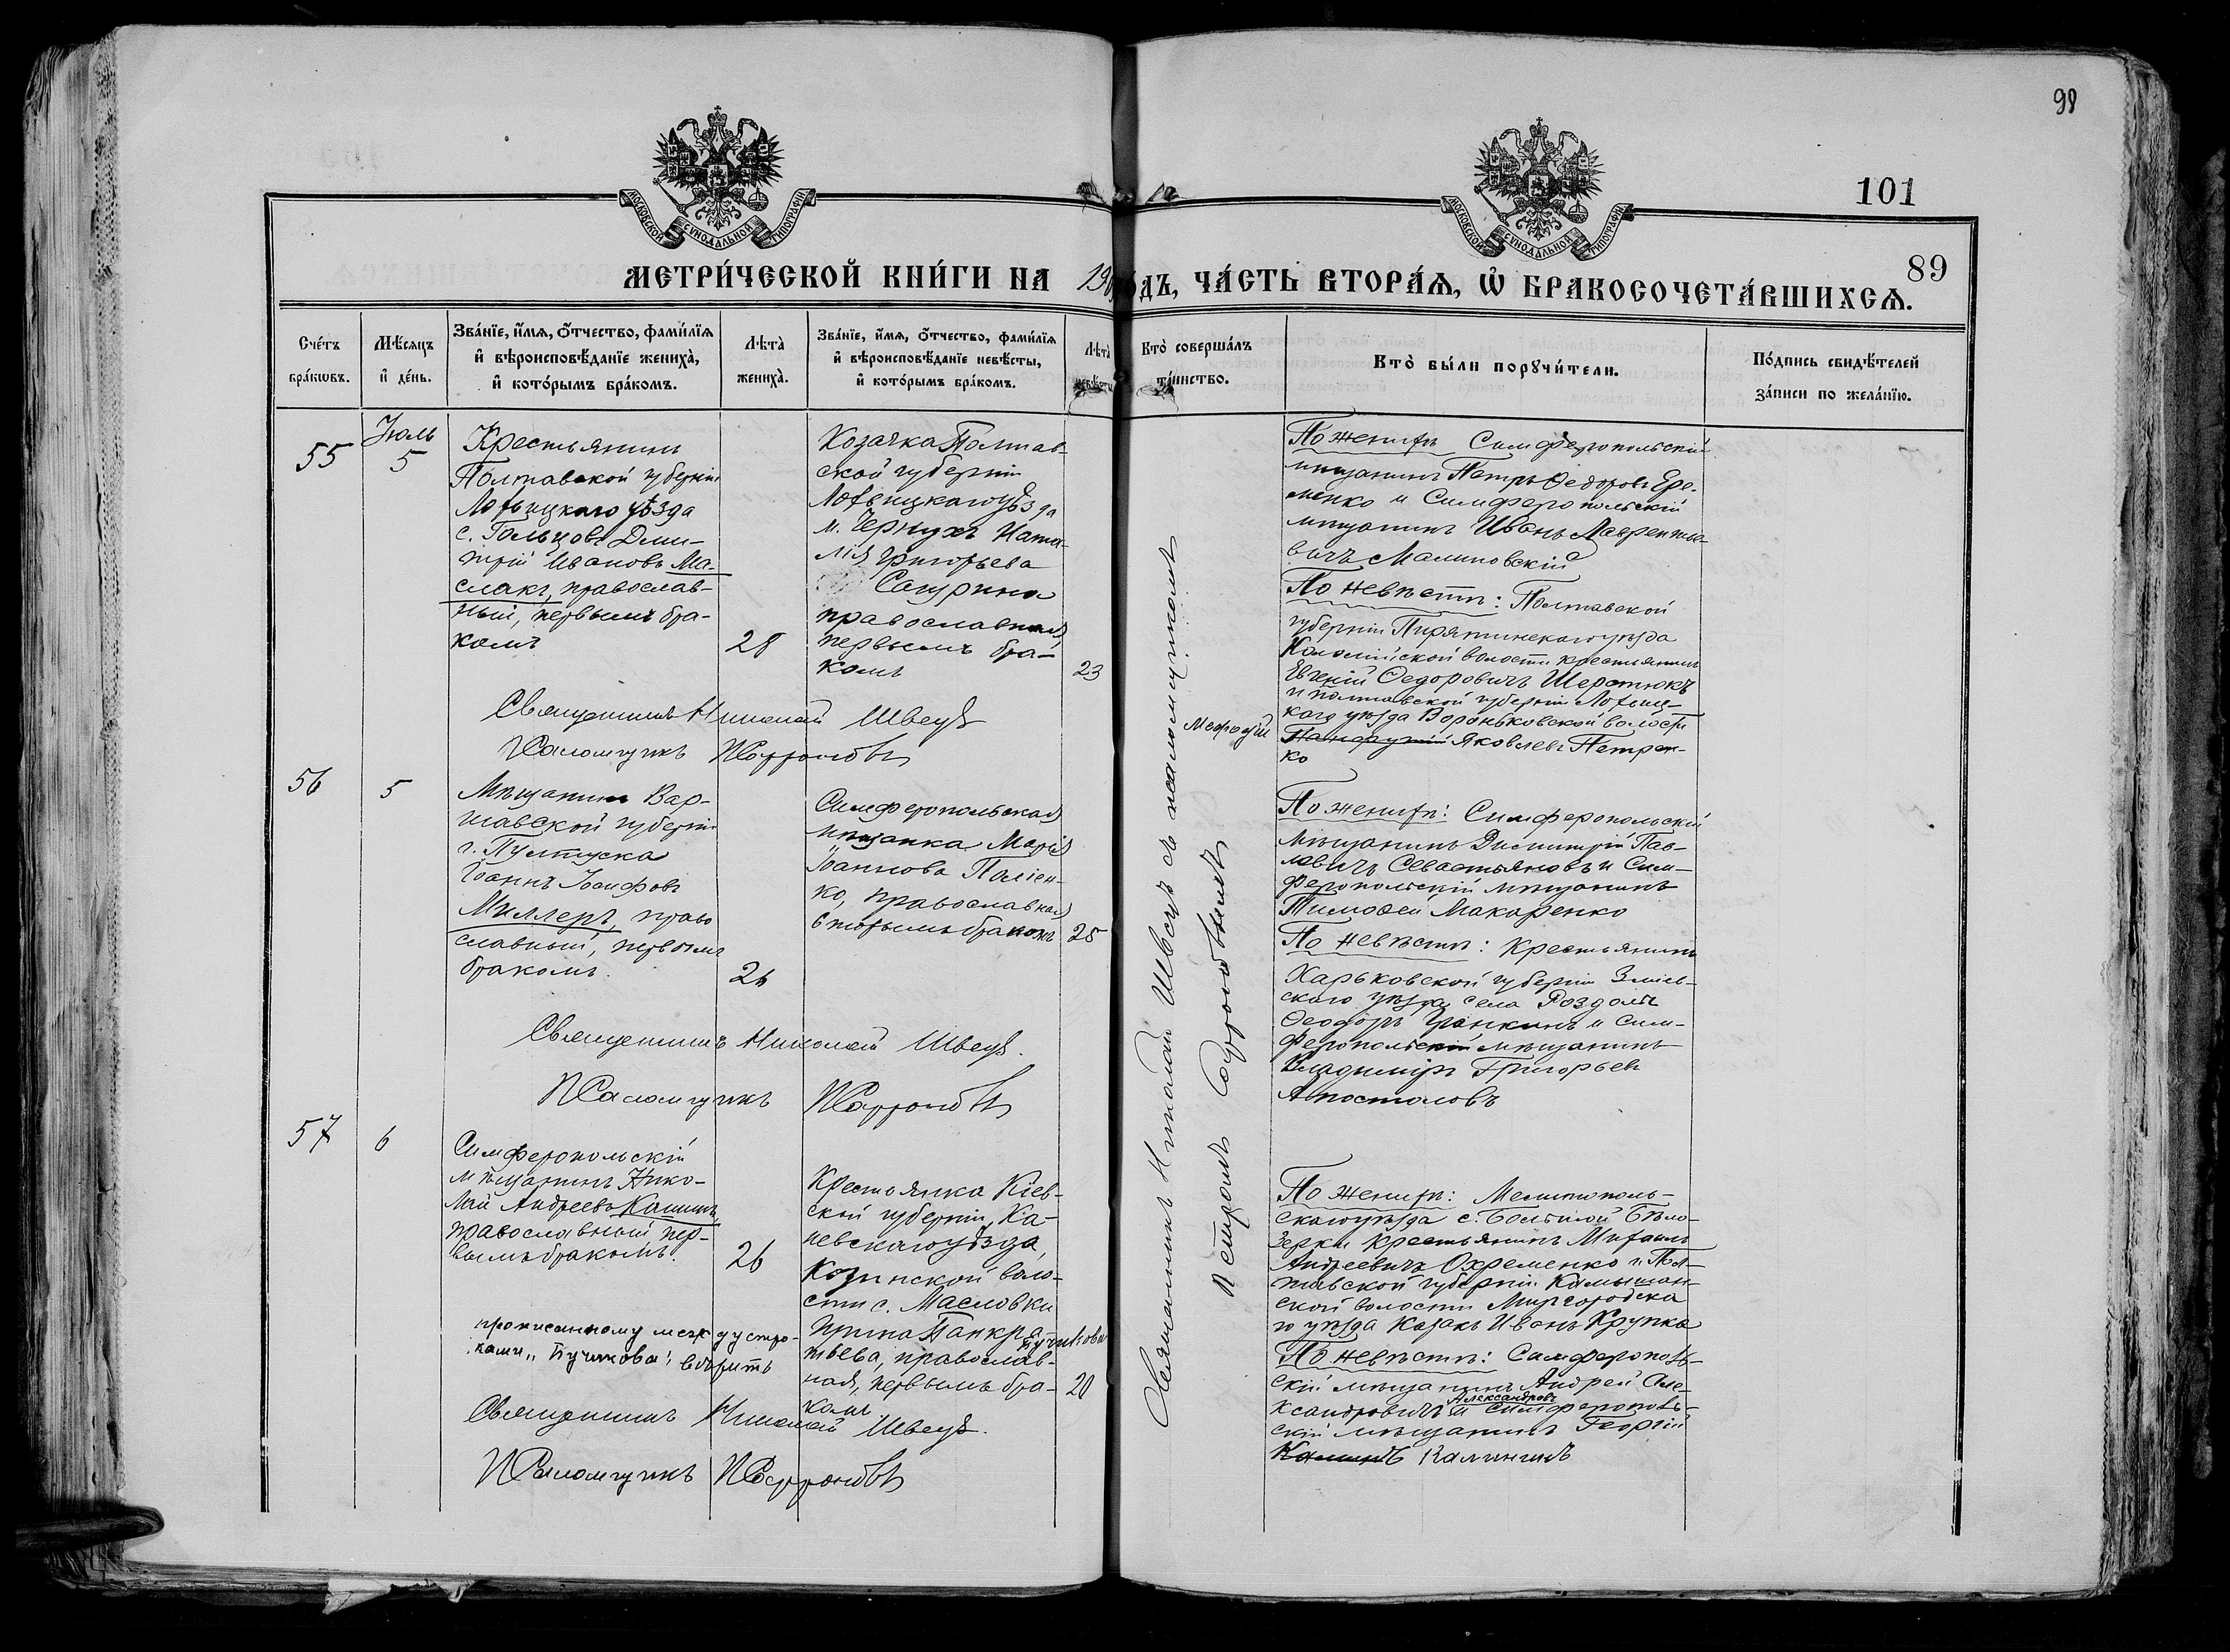 98
101
89
МОСКОВСКОЙ СУНОДАЛЬНОЙ ТИПОГРАФІИ
МОСКОВСКОЙ СУНОДАЛЬНОЙ ТИПОГРАФІИ
МЕТРИ́ЧЕСКОЙ КНИ́ГИ НА 19
ДЪ, ЧА́СТЬ ВТОРА́Ѧ, Ѡ҆ БРАКОСОЧЕТА́ВШИХСѦ.
Сче́тъ бра́кѡвъ.
Мѣ́сяцъ и҆ де́нь.
Зва́нїе, и҆́мѧ, ѻ҆́тчество, фами́лїѧ
и҆ вѣроисповѣ́данїе жениха̀,
и҆ кото́рымъ бра́комъ.
Лѣта̀ жениха̀.
Зва́нїе, и҆́мѧ, ѻ҆́тчество, фами́лїѧ
и҆ вѣроисповѣ́данїе невѣ́сты,
и҆ кото́рымъ бра́комъ.
Лѣта̀ невѣ́сты
Кто̀ соверша́лъ та́инство.
Кто̀ бы́ли порꙋчи́тели.
По́дпись свидѣ́телей
за́писи по жела́нїю.
55
Іюль
5
Крестьянинъ
Полтавской губерніи
Лохвицкаго уѣзда
с. Гольцовъ Дми-
трій Ивановъ Ма-
слакъ, православ-
ный, первымъ бра-
комъ
28
Козачка Полтав-
ской губерніи
Лохвицкаго уѣзда
м. Чернухъ Ната-
лія Григорьева
Сацрина
православная
первымъ бра-
комъ
23
Священникъ Николай Швецъ
Псаломщикъ
По женихѣ Симферопольскій
мѣщанинъ Петръ Ѳедоровъ Ере-
менко и Симферопольскій
мѣщанинъ Иванъ Лаврентье-
вичъ Малиновскій
По невѣстѣ: Полтавской
губерніи Пирятинскаго уѣзда
волости крестьянинъ
Евгеній Ѳедоровичъ Шерстюкъ
и полтавской губерніи Лохвиц-
каго уѣзда Вороньковской волости
Меѳодій
Яковлевъ Петрен-
ко
56
5
Мѣщанинъ Вар-
шавской губерніи
г. Пултуска
Іоаннъ Іосифовъ
Миллеръ, право
славный, первымъ
бракомъ.
26
Симферопольская
мѣщанка Марія
Іоаннова Поліен-
ко, православная
вторымъ бракомъ
25
Священникъ Николай Швецъ.
Псаломщикъ
По женихѣ: Симферопольскій
мѣщанинъ Димитрій Пав-
ловичъ Севастьяновъ и Сим-
феропольскій мѣщанинъ
Тимоѳей Макаренко
По невѣстѣ: Крестьянинъ
Харьковской губерніи Зміев-
скаго уѣзда села Роздолъ
Ѳеодоръ и Сим-
феропольскій мѣщанинъ
Владиміръ Григорьев
Апостоловъ
57
6
Симферопольскій
мѣщанинъ Нико-
лай Андреевъ Кашинъ,
православный пер-
вымъ бракомъ.
26
Крестьянка Кіев-
ской губерніи, Ка-
невскаго уѣзда,
Козинской воло-
сти с. Масловки
Ирина Панкра-
Пучикова
тьева, православ-
ная, первымъ бра-
комъ
20
прописанному между стро-
ками „Пучикова" вѣрить
Священникъ Николай Швецъ.
Псаломщикъ
По женихѣ: Мелитополь-
скаго уѣзда с. Большой Бѣло-
зерки крестьянинъ Михаилъ
Андреевичъ Охременко и Пол-
тавской губерніи Камышан-
ской волости Миргородска
го уѣзда Казакъ Иванъ Крупка
По невѣстѣ: Симферополь-
скій мѣщанинъ Андрей Але-
ксандровичъ Александровъ и Симферополь-
скій мѣщанинъ Георгій
Калининъ
Священникъ Николай Швецъ съ псаломщикомъ
Петромъ